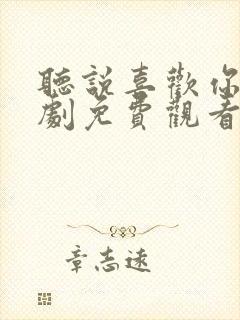 聽說喜歡你
劇免費觀看
章志遠